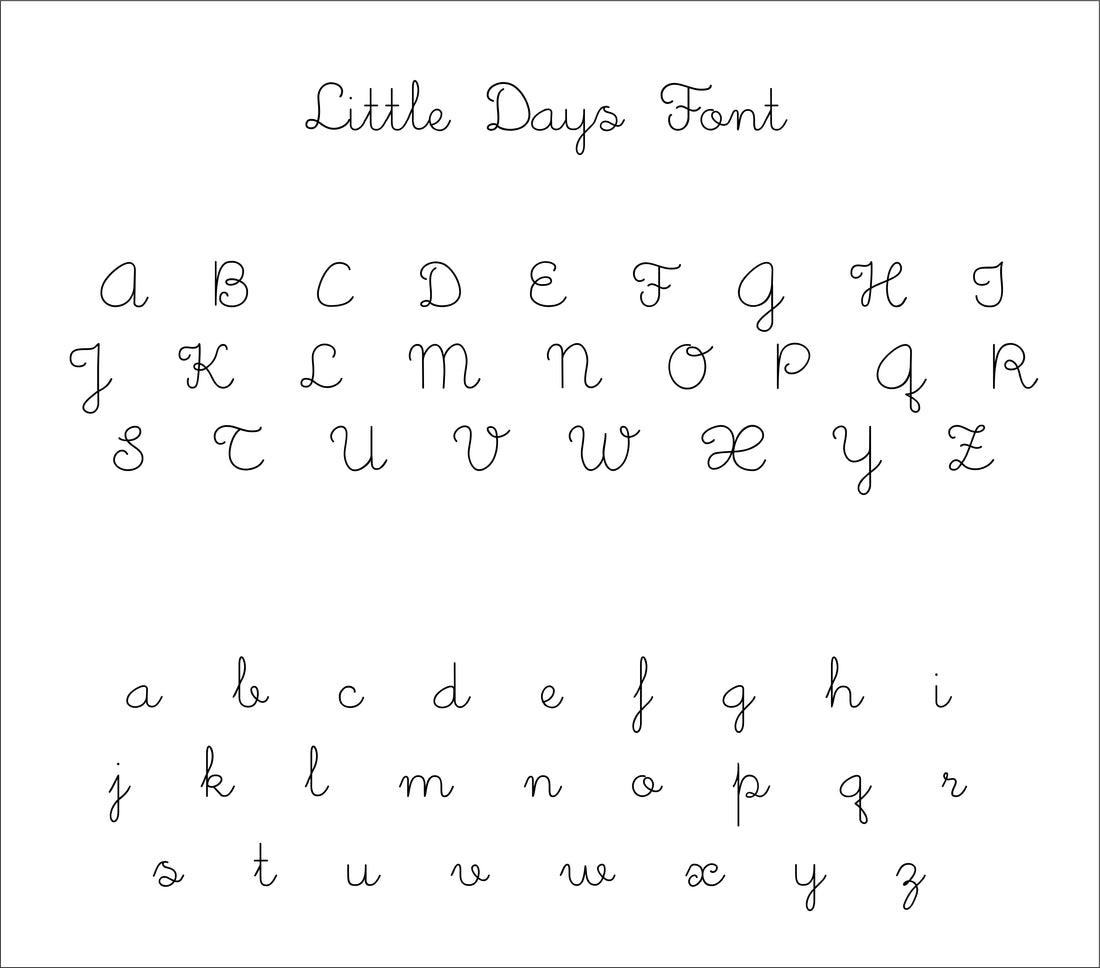 Little Days Font
A B C D E F G H I
J K L M N O P Q R
S T U V W X Y Z
a b c d e f g h i
j k l m n o p q r
s t u v w x y z